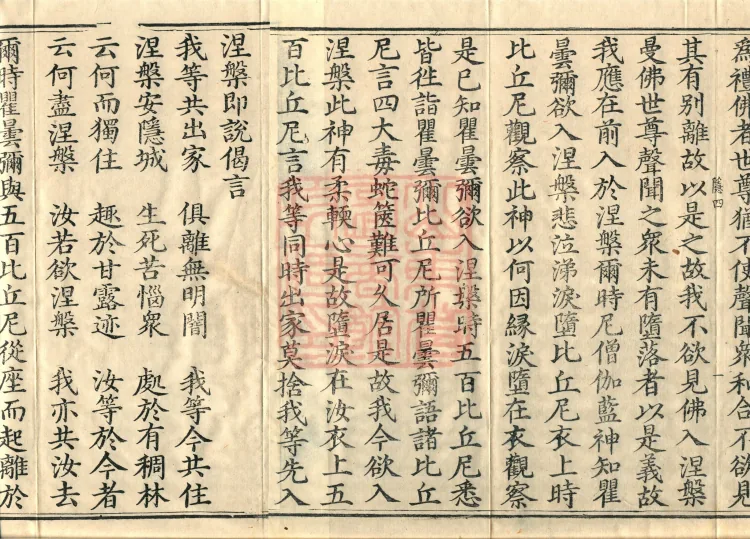 爲禮佛者世尊猶不使聲聞衆和合不欲見
其有別離故以是之故我不欲見佛入涅槃
曼佛世尊聲聞之衆未有墮落者以是義故
我應在前入於涅槃爾時尼僧伽藍神知瞿
曇彌欲入涅槃悲泣涕淚墮比丘尼衣上時
比丘尼觀察此神以何因緣淚墮在衣觀察
是已知瞿曇彌欲入涅槃時五百比丘尼悉
皆徃詣瞿曇彌比丘尼所瞿曇彌語諸比丘
尼言四大毒蛇篋難可久居是故我今欲入
涅槃此神有柔輭心是故墮淚在汝衣上五
百比丘尼言我等同時出家莫捨我等先入
涅槃即說偈言
我等共出家　俱離無明闇　我等今共住
涅槃安隱城　生死苦惱衆　處於有稠林
云何而獨住　趣於甘露迹　汝等於今者
云何盡涅槃　汝若欲涅槃　我亦共汝去
爾時瞿曇彌與五百比丘尼從座而起離於